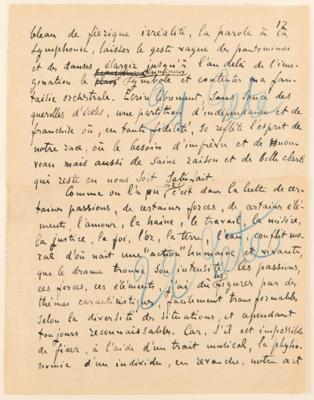 12
bleau de féerique irréalité, la parole à la
symphonie, laisser le geste vague des pantomimes
et des danses, élargir jusqu'à l'au delà de l'ima-
gination le symbole et contenter ma fan-
taisie orchestrale. Écrire librement, sans souci des
querelles d'écoles, une partition d'indépendance et de
franchise où, en toute fidélité, se reflète l'esprit de
notre race, où le besoin d'imprévu et de nou-
veau mais aussi de saine raison et de belle clarté
qui reste en nous satisfait.
Comme on l'a pu c'est dans la lutte de cer-
taines passions, de certaines forces, de certains élé-
ment, l'amour, la haine, le travail, la misère,
la justice, la foi, l'or, la terre, l'eau, conflit mo-
ral d'où nait une action humaine et vivante,
que le drame trouve son intensité. Les passions,
ces forces, ces éléments, j'ai dû figurer par des
thèmes caractéristiques facilement transformables
selon la diversité des situations, et cependant
toujours reconnaissables. Car, s'il est impossible
de fixer, à l'aide d'un trait musical, la physio-
nomie d'un individu, en revanche, notre art